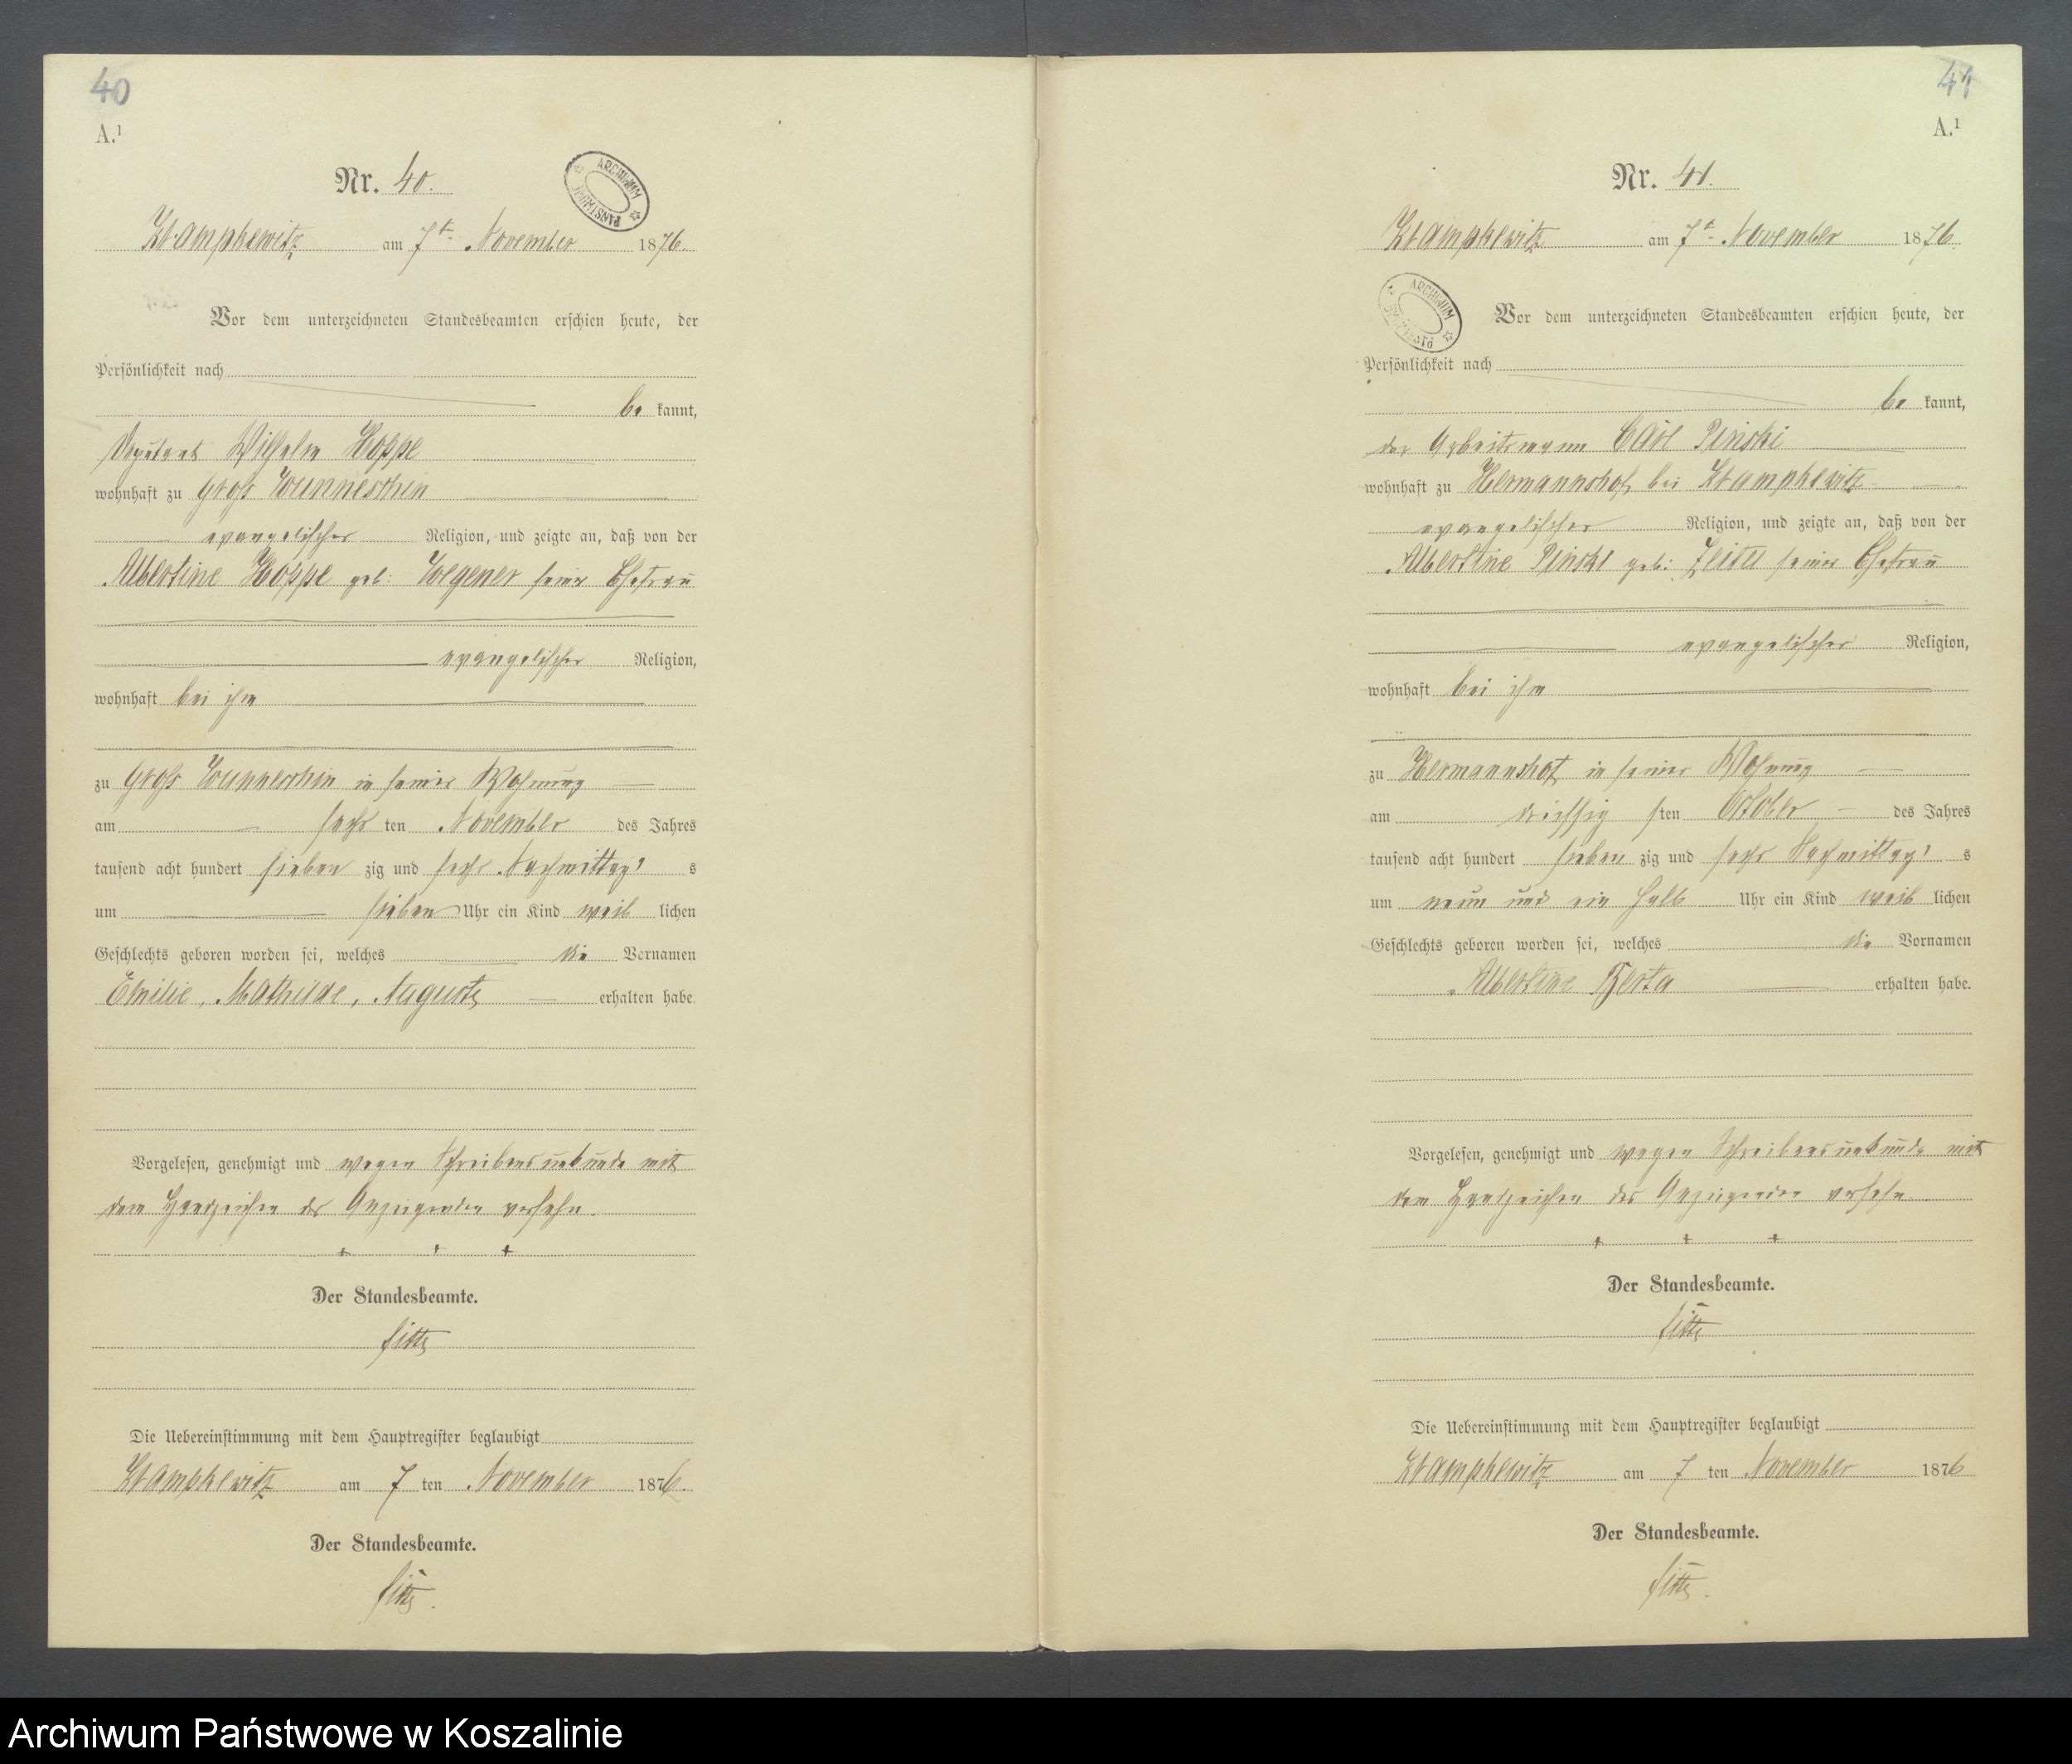 40
A.¹
Nr. 40.
ARCHIWUM PAŃSTWOWE
Krampkewitz am 7t November 1876.
Vor dem unterzeichneten Standesbeamten erschien heute, der
Persönlichkeit nach
be kannt,
Deputant Wilhelm Hoppe
wohnhaft zu Groß Wunneschin
evangelischer Religion, und zeigte an, daß von der
Albertine Hoppe geb: Wegener seiner Ehefrau
evangelischer Religion,
wohnhaft bei ihm
zu Groß Wunneschin in seiner Wohnung
am sechs ten November des Jahres
tausend acht hundert sieben zig und sechs Nachmittag's
um sieben Uhr ein Kind weib lichen
Geschlechts geboren worden sei, welches die Vornamen
Emilie, Mathilde, Auguste erhalten habe
Vorgelesen, genehmigt und wegen Schreibensunkunde mit
dem Handzeichen des Anzeigenden versehn.
+ + +
Der Standesbeamte.
Die Uebereinstimmung mit dem Hauptregister beglaubigt
Krampkewitz am 7 ten November 1876.
Der Standesbeamte.
41
A.¹
Nr. 41.
Krampkewitz am 7t November 1876.
ARCHIWUM PAŃSTWOWE
Vor dem unterzeichneten Standesbeamten erschien heute, der
Persönlichkeit nach
be kannt,
der Arbeitsmann Carl Pinski
wohnhaft zu Hermannshof bei Krampkewitz
evangelischer Religion, und zeigte an, daß von der
Albertine Pinski geb: seiner Ehefrau
evangelischer Religion,
wohnhaft bei ihm
zu Hermannshof in seiner Wohnung
am dreißig sten October des Jahres
tausend acht hundert sieben zig und sechs Nachmittag's
um neun und ein halb Uhr ein Kind weib lichen
Geschlechts geboren worden sei, welches die Vornamen
Albertine Berta erhalten habe.
Vorgelesen, genehmigt und wegen Schreibensunkunde mit
dem Handzeichen des Anzeigenden versehn
+ + +
Der Standesbeamte.
Die Uebereinstimmung mit dem Hauptregister beglaubigt
Krampkewitz am 7 ten November 1876
Der Standesbeamte.
Archiwum Państwowe w Koszalinie